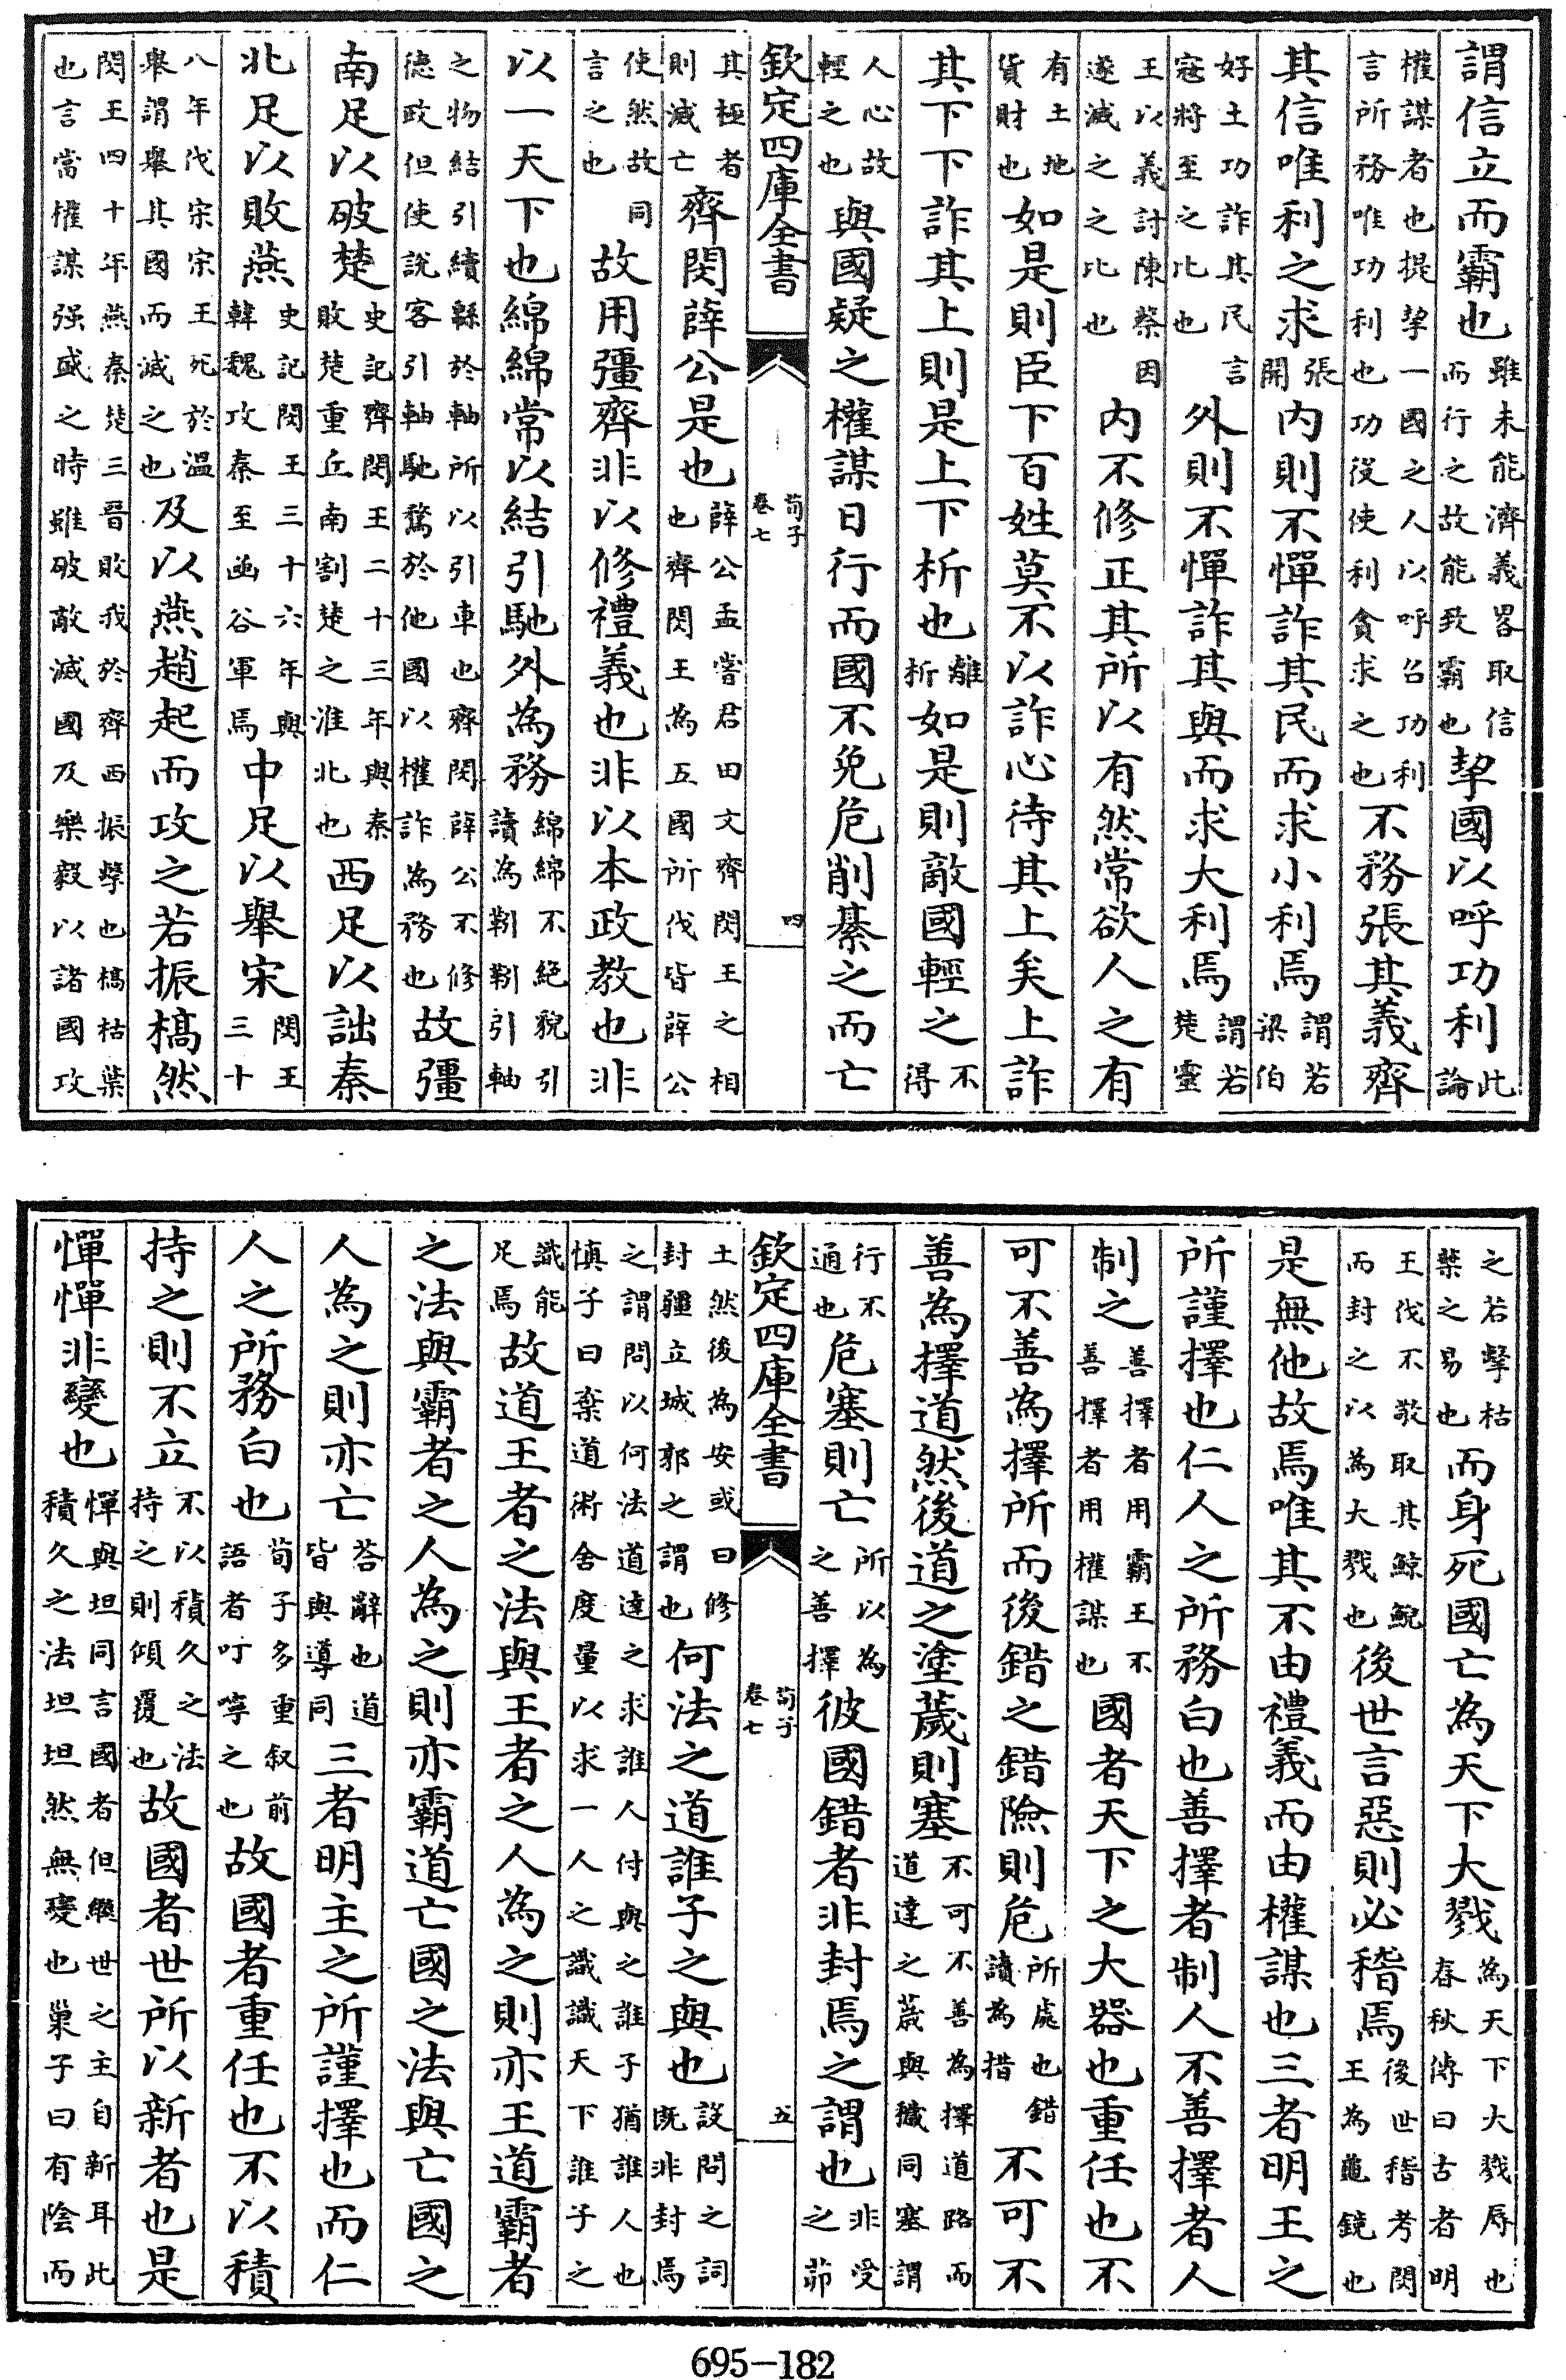 謂信立而霸也雖未能濟義畧取信而行之故能致霸也挈國以呼功利此論
權謀者也提挈一國之人以呼召功利言所務唯功利也功役使利貪求之也不務張其義齊
其信唯利之求張開内則不憚詐其民而求小利焉謂若梁伯
好土功詐其民言寇將至之比也外則不憚詐其與而求大利焉謂若楚靈
王以義討陳蔡因遂滅之之比也内不修正其所以有然常欲人之有
有土地貨財也如是則臣下百姓莫不以詐心待其上矣上詐
其下下詐其上則是上下析也離析如是則敵國輕之不得
人心故輕之也與國疑之權謀日行而國不免危削綦之而亡
欽定四庫全書
荀子
卷七
四
其極者則滅亡齊閔薛公是也薛公孟嘗君田文齊閔王之相也齊閔王為五國所伐皆薛公
使然故同言之也故用彊齊非以修禮義也非以本政教也非
以一天下也綿綿常以結引馳外為務綿綿不絶貌引讀為靷靷引軸
之物結引續繇於軸所以引車也齊閔薛公不修德政但使說客引軸馳騖於他國以權詐為務也故彊
南足以破楚史記齊閔王二十三年與秦敗楚重丘南割楚之淮北也西足以詘秦
北足以敗燕史記閔王三十六年與韓魏攻秦至函谷軍焉中足以舉宋閔王三十
八年伐宋宋王死於溫舉謂舉其國而滅之也及以燕趙起而攻之若振槁然
閔王四十年燕秦楚三晉敗我於齊西振擊也槁枯葉也言當權謀强盛之時雖破敵滅國及樂毅以諸國攻
之若擊枯葉之易也而身死國亡為天下大戮為天下大戮辱也春秋傳曰古者明
王伐不敬取其鯨鯢而封之以為大戮也後世言惡則必稽焉後世稽考閔王為龜鏡也
是無他故焉唯其不由禮義而由權謀也三者明王之
所謹擇也仁人之所務白也善擇者制人不善擇者人
制之善擇者用霸王不善擇者用權謀也國者天下之大器也重任也不
可不善為擇所而後錯之錯險則危所處也錯讀為措不可不
善為擇道然後道之塗薉則塞不可不善為擇道路而道達之薉與穢同塞謂
行不通也危塞則亡所以為之善擇彼國錯者非封焉之謂也非受之茆
欽定四庫全書
荀子
卷七
五
土然後為安或曰修封疆立城郭之謂也何法之道誰子之與也設問之詞既非封焉
之謂問以何法道達之求誰人付與之誰子猶誰人也慎子曰棄道術舍度量以求一人之識識天下誰子之
識能足焉故道王者之法與王者之人為之則亦王道霸者
之法與霸者之人為之則亦霸道亡國之法與亡國之
人為之則亦亡荅辭也道皆與導同三者明主之所謹擇也而仁
人之所務白也荀子多重叙前語者叮嚀之也故國者重任也不以積
持之則不立不以積久之法持之則傾覆也故國者世所以新者也是
憚憚非變也憚與坦同言國者但繼世之主自新耳此積久之法坦坦然無變也巢子曰有陰而
695-182